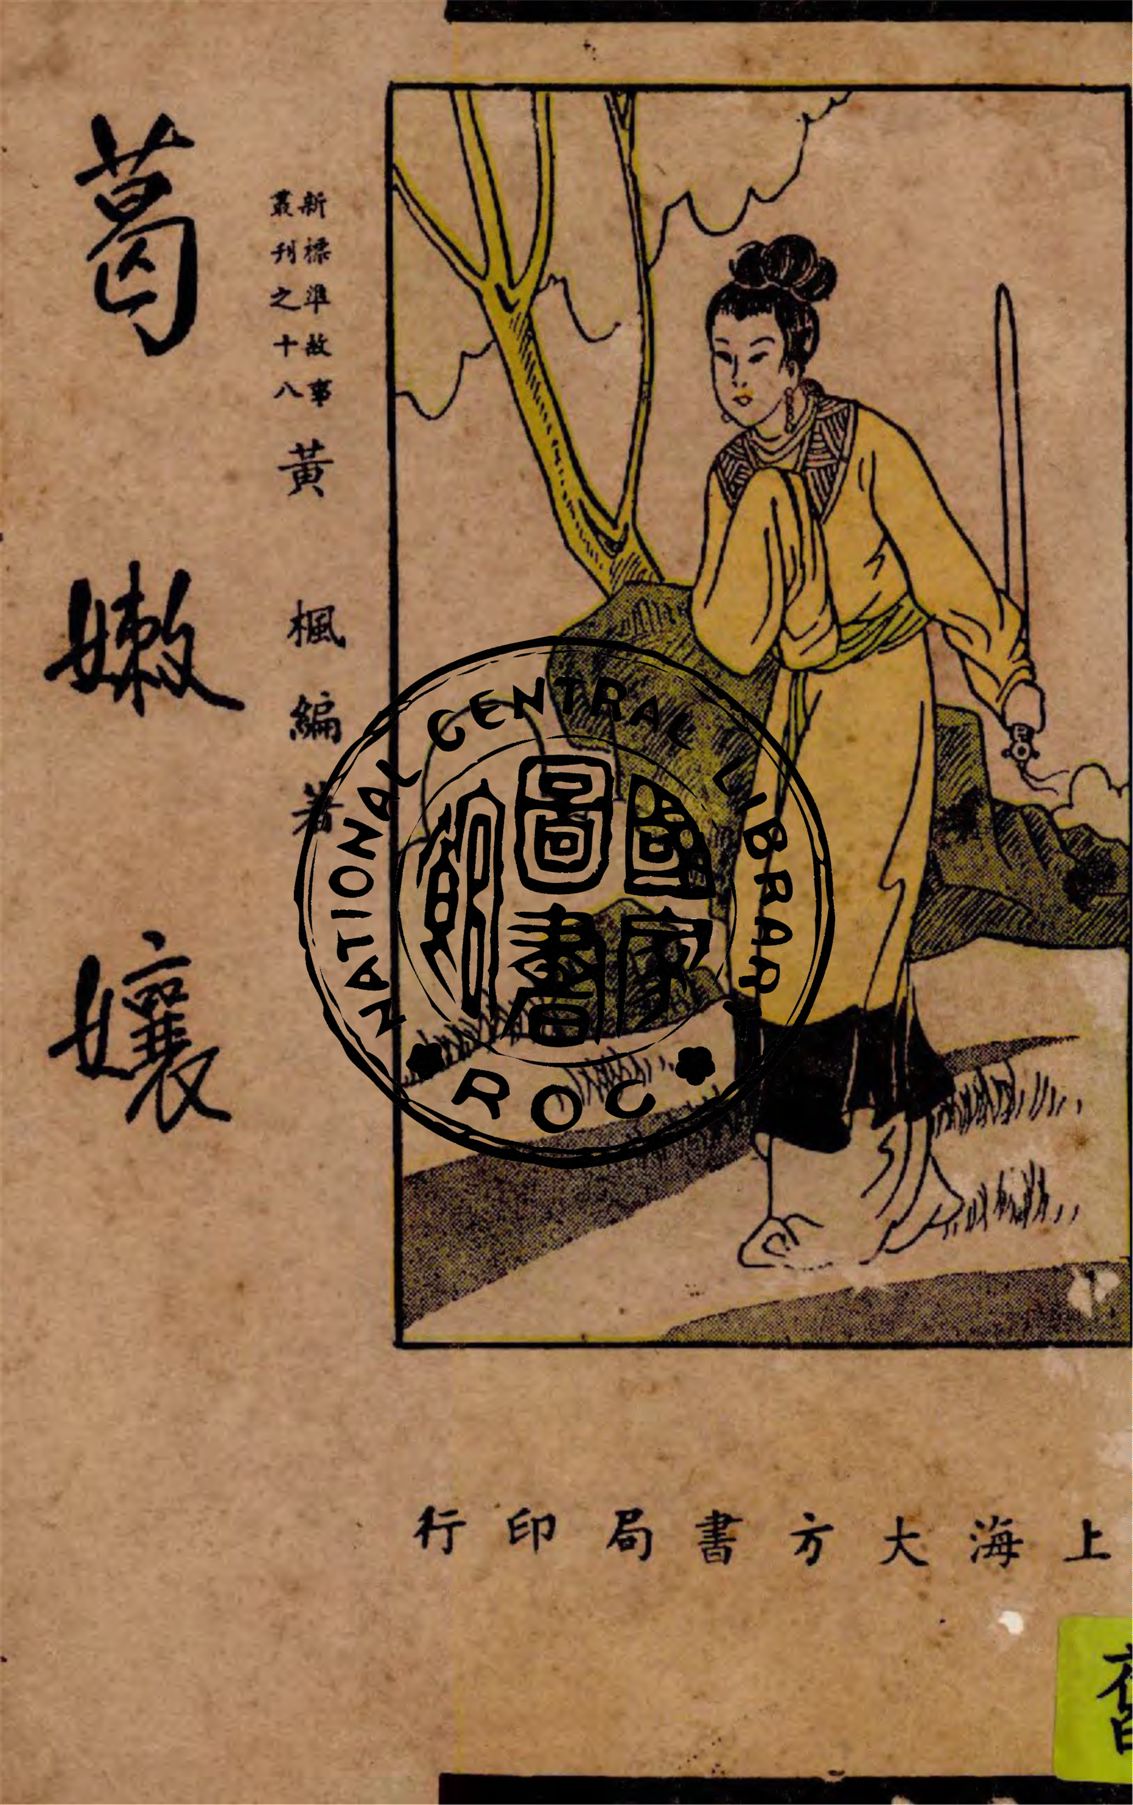 葛嫩孃
新標準故事
叢刊之十八
黃楓編著
NATIONAL CENTRAL LIBRARY
國家圖書館
ROC
上海大方書局印行